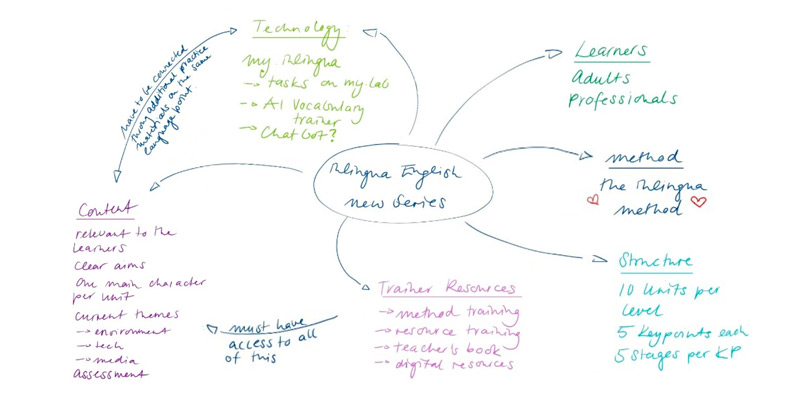 Technology:
my inlingua
→ tasks on my.lab
→ AI Vocabulary
trainer
→ Chatbot?
have to be connected
through additional practice
materials on the same
language point.
Learners
Adults
Professionals
inlingua English
new Series
method
the inlingua
method
Content
relevant to the
learners
clear aims
one main character
per unit
current themes
→ environment
→ tech
→ media
assessment
must have
access to all
of this
Trainer Resources
→ method training
→ resource training
→ teacher's book
→ digital resources
Structure
10 Units per
level
5 Keypoints each
5 Stages per KP